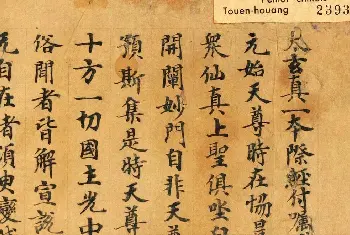 Touen-houang 2393
太玄真一本際經付囑
元始天尊時在協晨
衆仙真上聖俱坐
開闡妙門自非天
預斯集是時天尊
十方一切國王光中
俗聞者皆解宣說
自在者須臾變